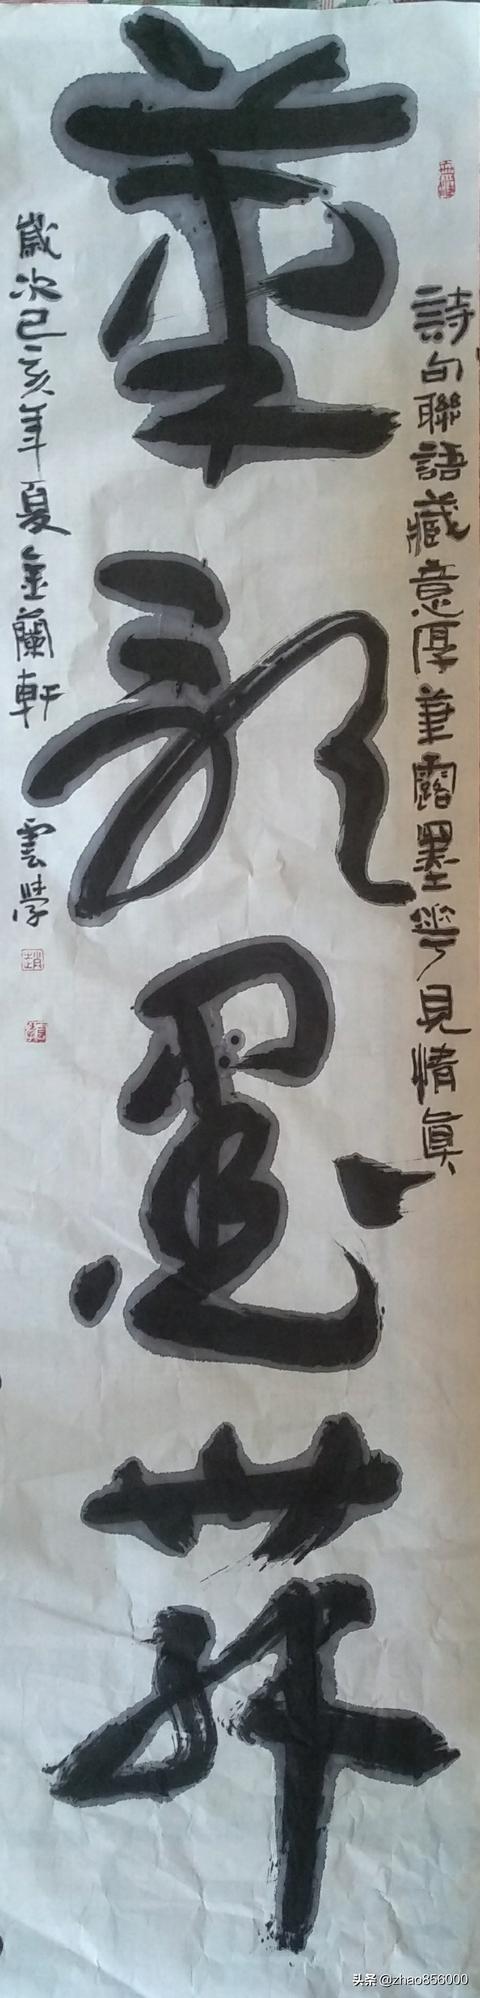 詩句聯語藏意厚筆露墨華見情眞
筆歌墨舞
歲次己亥年夏金蘭軒 雲學
头条 @zhao856000